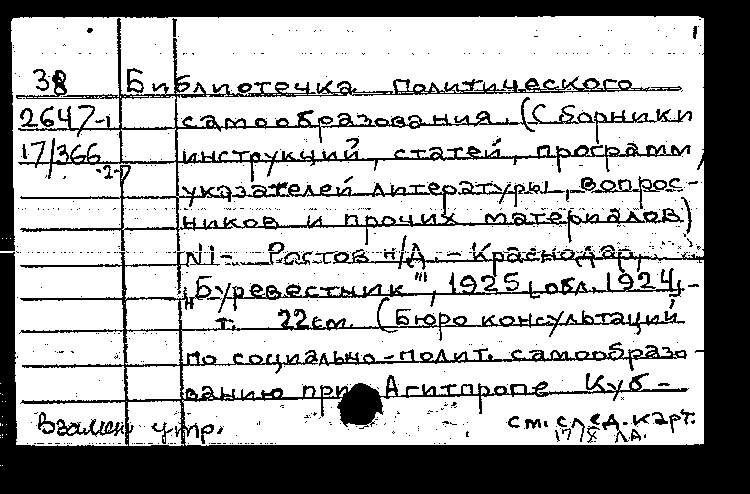 1
38 Библиотечка политического
2647-1 самообразования. (Сборники
17/366 инструкций, статей, программ,
-2-7 указателей литературы, вопрос-
ников и прочих материалов)
N1- Ростов н/Д. - Краснодар,
"Буревестник", 1925 [обл. 1924]-
т. 22см. (Бюро консультаций
по социально-полит. самообразо-
ванию при Агитпропе Куб-
Взамен утр. см. след. карт.
17/8